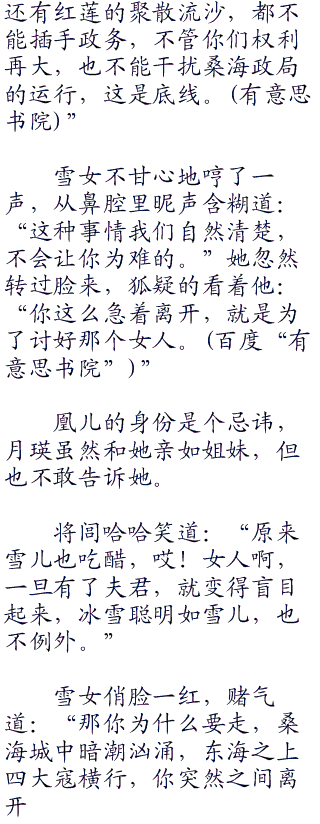 还有红莲的聚散流沙，都不
能插手政务，不管你们权利
再大，也不能干扰桑海政局
的运行，这是底线。(有意思
书院)”
雪女不甘心地哼了一
声，从鼻腔里昵声含糊道：
“这种事情我们自然清楚，
不会让你为难的。”她忽然
转过脸来，狐疑的看着他：
“你这么急着离开，就是为
了讨好那个女人。(百度“有
意思书院”)”
凰儿的身份是个忌讳，
月瑛虽然和她亲如姐妹，但
也不敢告诉她。
将闾哈哈笑道：“原来
雪儿也吃醋，哎！女人啊，
一旦有了夫君，就变得盲目
起来，冰雪聪明如雪儿，也
不例外。”
雪女俏脸一红，赌气
道：“那你为什么要走，桑
海城中暗潮汹涌，东海之上
四大寇横行，你突然之间离
开